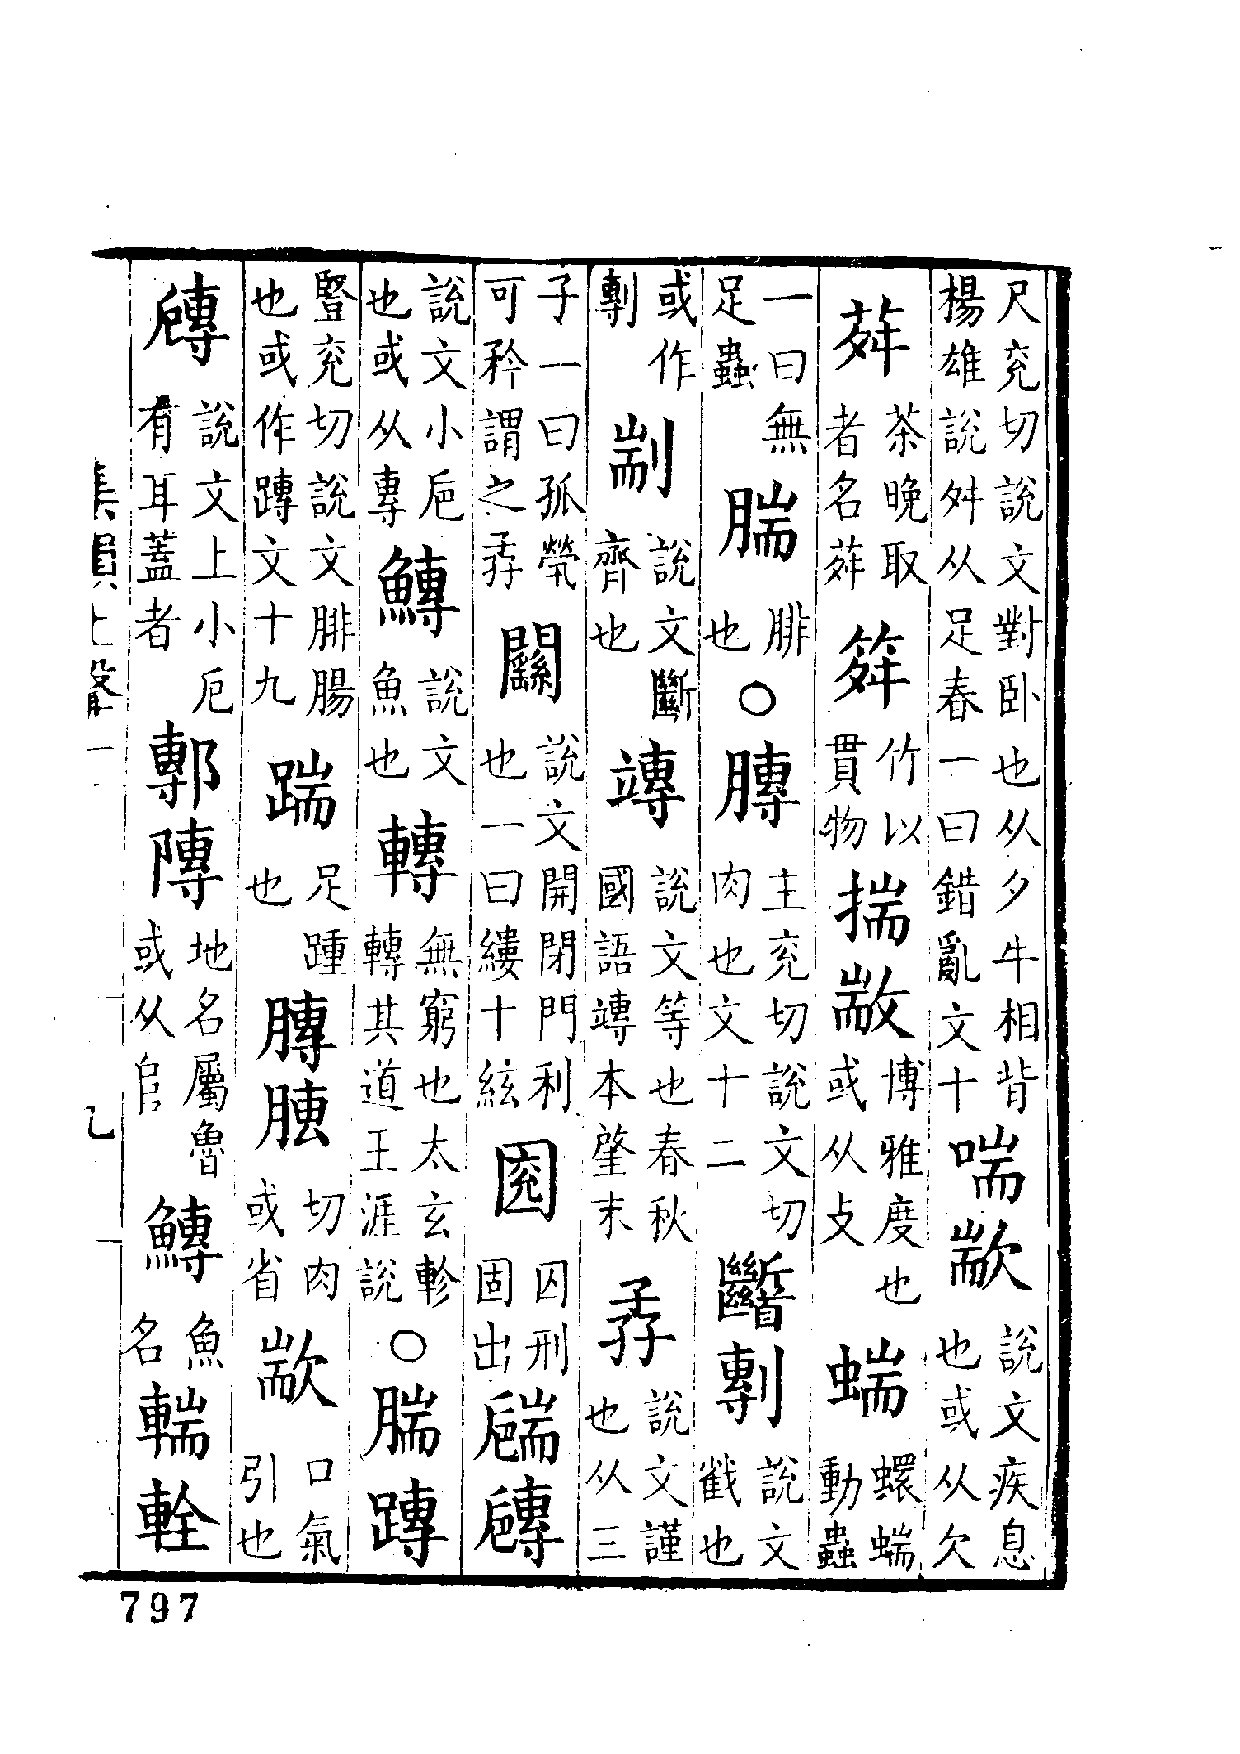 尺兖切說文對卧也从夕㐄相背楊雄說舛从足春一曰錯亂文十喘歂說文疾息也或从欠
荈茶晚取者名荈䇍竹以貫物揣敳博雅度也或从攴𧍒蠉𧍒動蟲
一曰無足蟲腨腓也○膞主兖切說文切肉也文十二剸說文截也
或作剸剬說文斷齊也竱說文等也春秋國語竱本肇末孨說文謹也从三
子一曰孤煢可矜謂之孨𨷲說文開閉門利也一曰縷十紘囚刑固出
說文小巵也或从專鱄說文魚也轉無窮也太玄軫轉其道王涯說○腨䠂
豎兖切說文腓腸也或作䠂文十九踹足踵也膞切肉或省歂口氣引也
說文上小巵有耳蓋者鄟地名屬魯或从𨸏鱄魚名輲輇
集韻上聲一
797